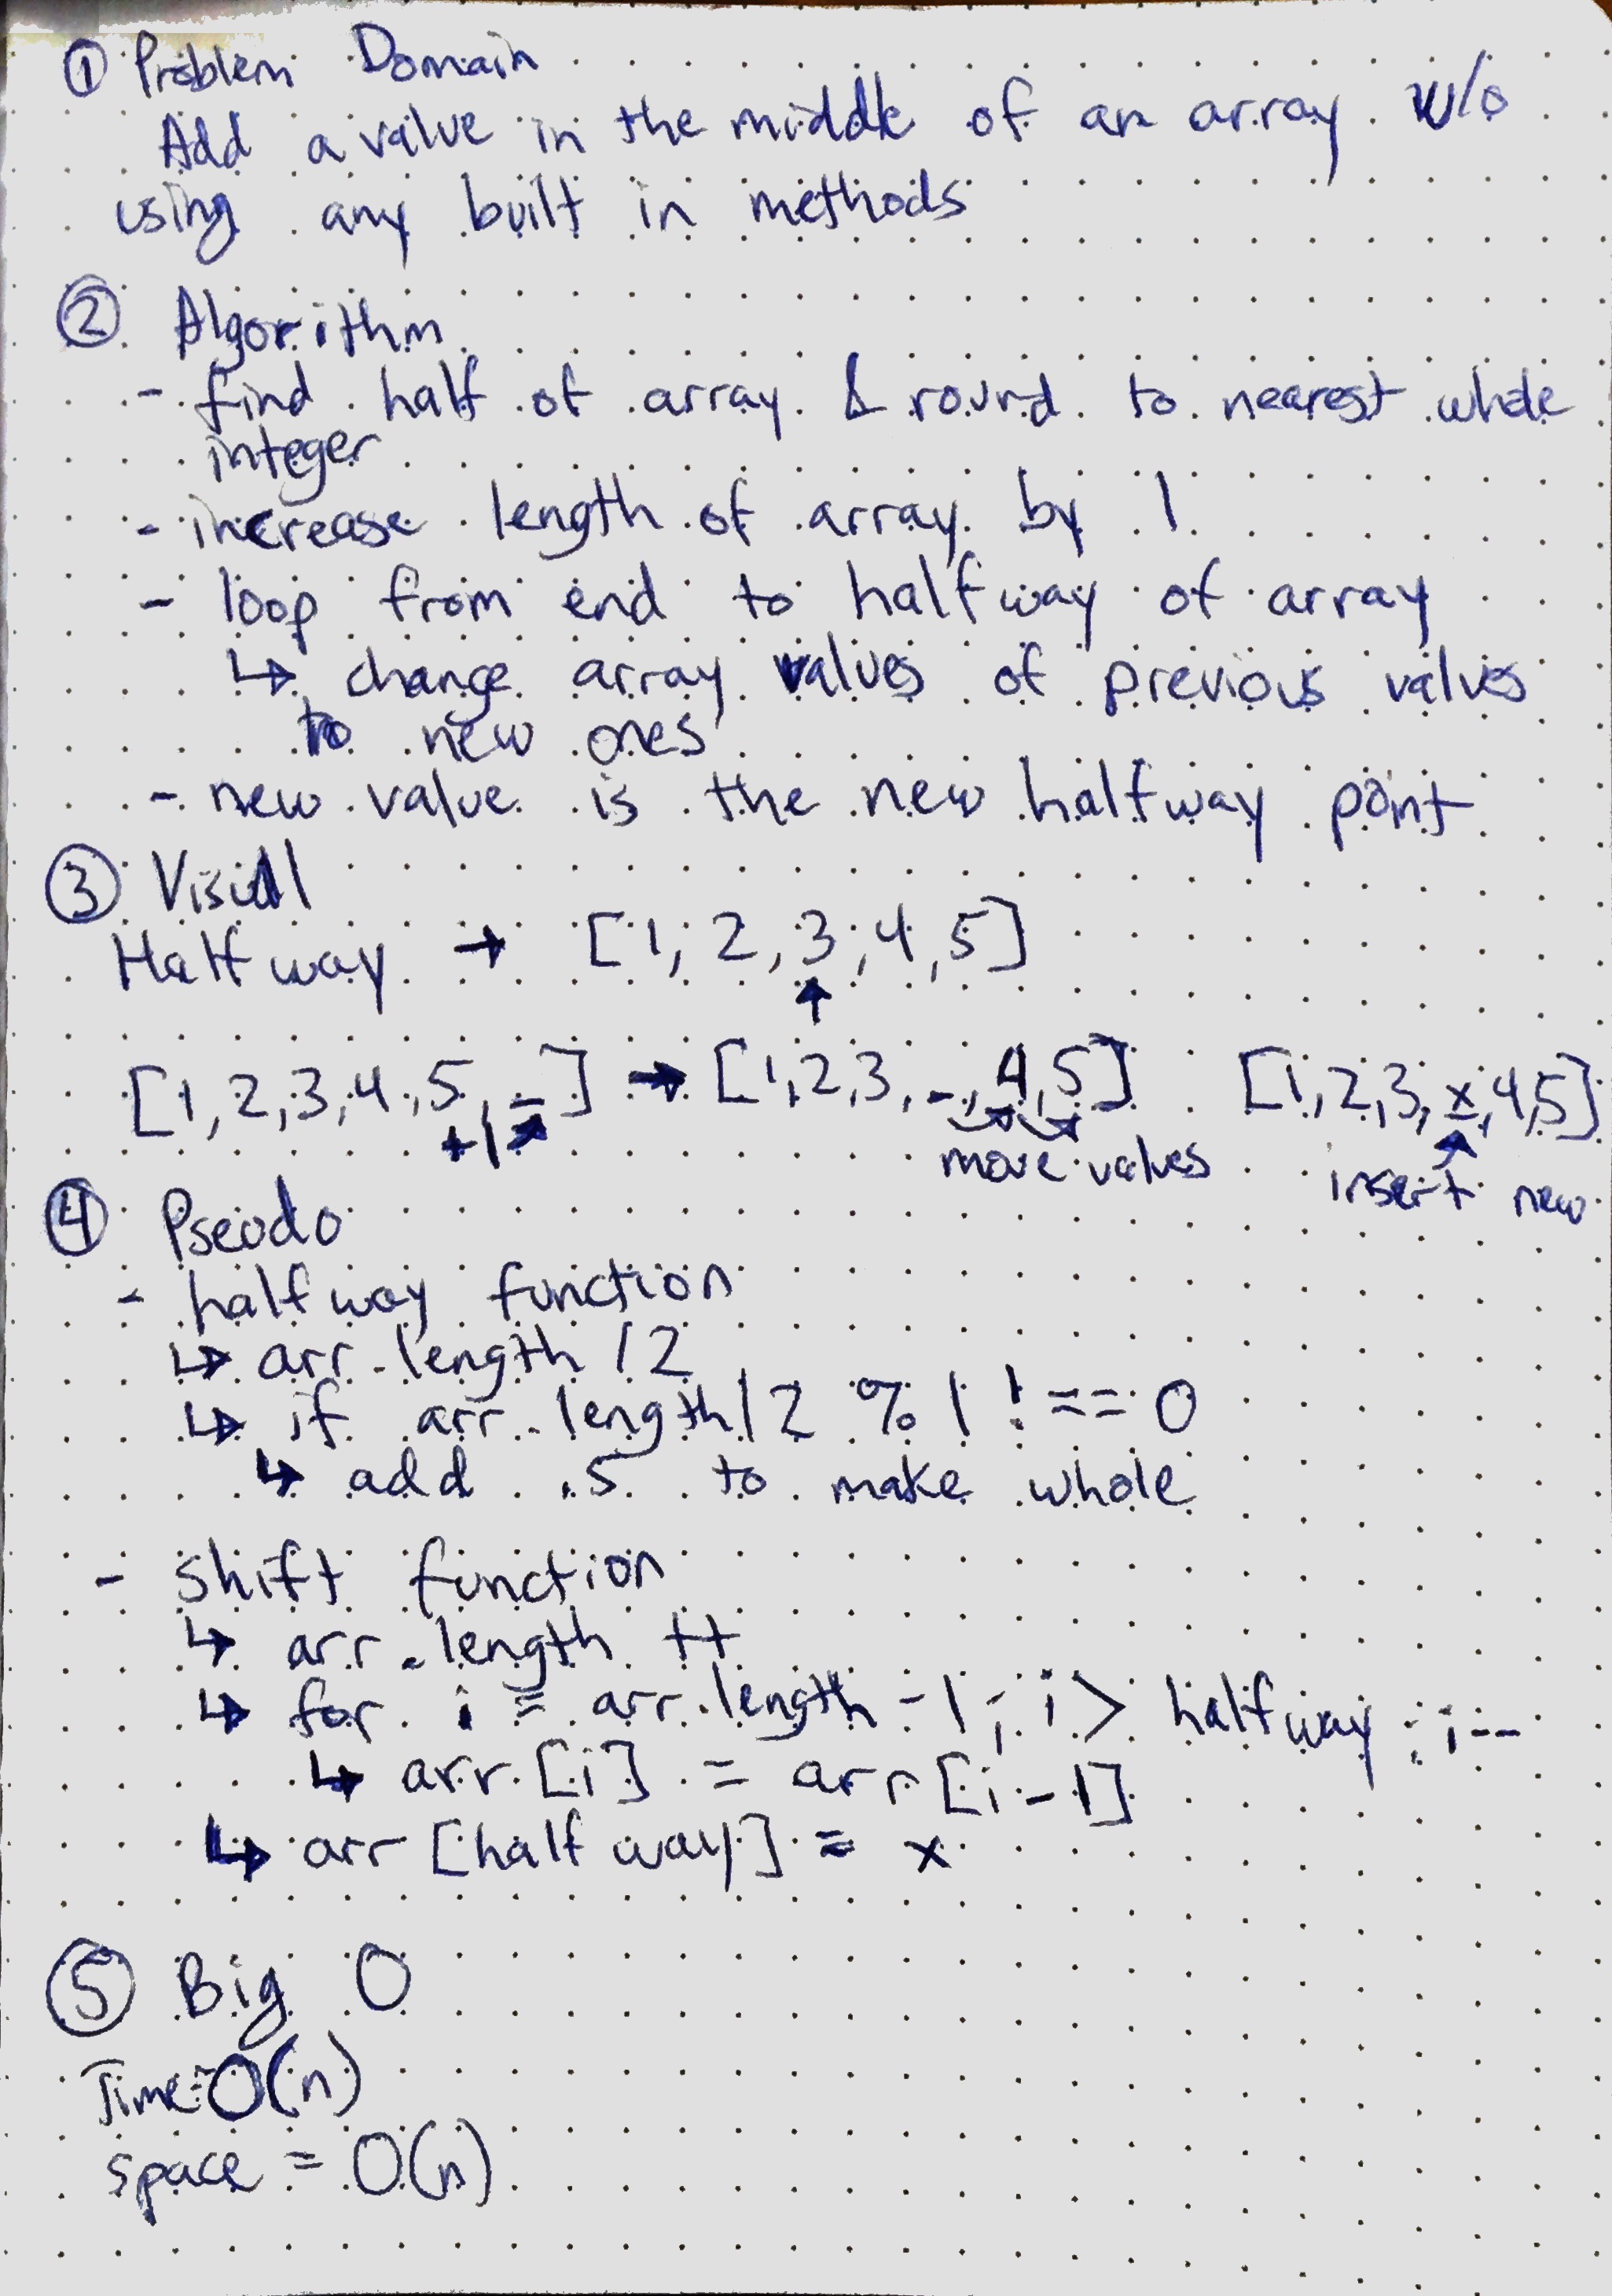 ① Problem Domain
Add a value in the middle of an array w/o
using any built in methods
② Algorithm
- find half of array & round to nearest whole
integer
- increase length of array by 1
- loop from end to halfway of array
↳ change array values of previous values
to new ones
- new value is the new halfway point
③ Visual
Halfway → [1, 2, 3, 4, 5]
↑
[1, 2, 3, 4, 5, _] → [1, 2, 3, _, 4, 5] [1, 2, 3, x, 4, 5]
+1 move values insert new
④ Pseudo
- halfway function
↳ arr.length / 2
↳ if arr.length / 2 % 1 !== 0
↳ add .5 to make whole
- shift function
↳ arr.length ++
↳ for i = arr.length - 1; i > halfway; i--
↳ arr[i] = arr[i-1]
↳ arr[halfway] = x
⑤ Big O
Time = O(n)
space = O(n)